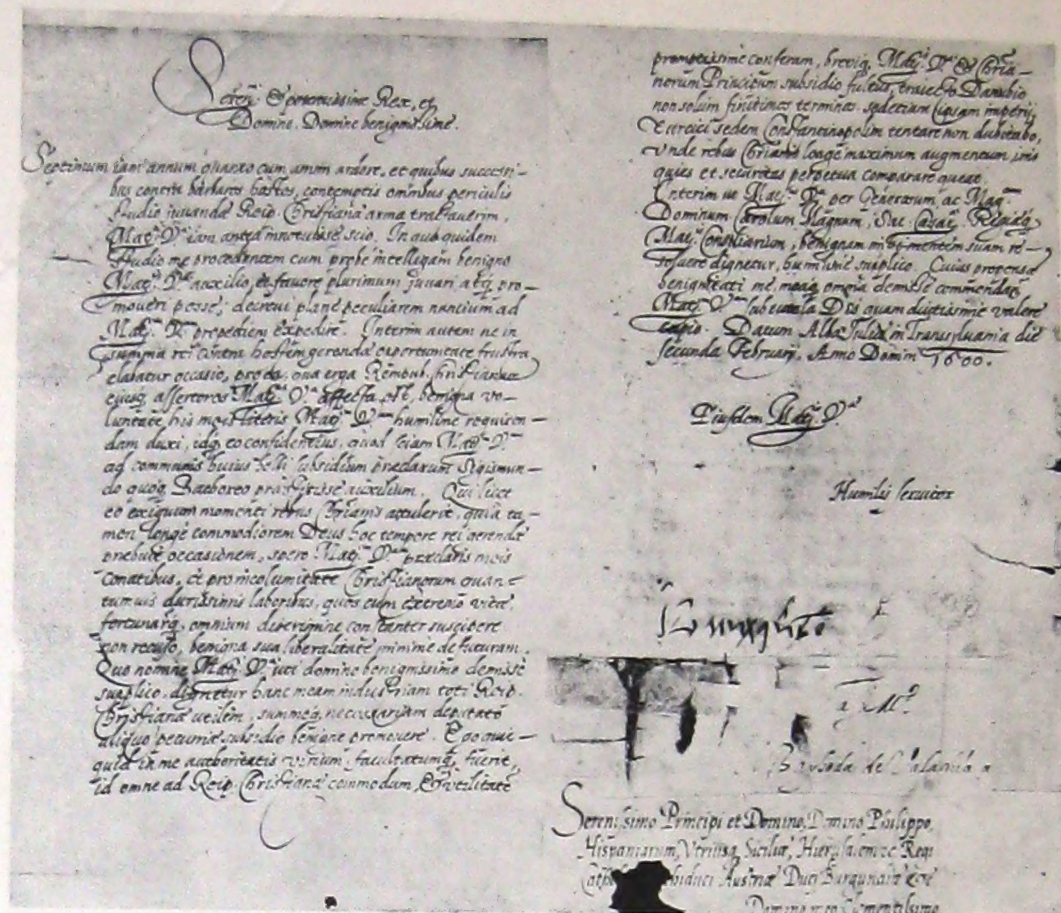 Seren: et potentissime Rex, et
Domine, Domine benignissime.
Septimum iam annum quanto cum animi ardore, et quibus successi-
bus contra barbaros hostes, contemptis omnibus periculis
studio iuvandæ Reip. Christianæ arma tractaverim,
Mati. Væ. iam antea innotuisse scio. In quo quidem
studio me procedentem cum probe intellegam benigno
Matis. Væ. auxilio, et favore plurimum juvari atq. pro-
moveri posse; decrevi plane peculiarem nuncium ad
Matem. Vam. propediem expedire. Interim autem ne in
summa rei contra hostem gerendæ oportunitate frustra
elabatur occasio, qua erga Rempub. Christianam
eiusq. assertores Matas. Va. affecta est, benigna vo-
luntate, his meis literis Matem. Vam. humilime requiren-
dam duxi, idq. eo confidentius, quod etiam Matem. Vam.
ad communis huius belli subsidium præclarum Sigismun-
do quoq. Bathoreo auxilium. Qui licet
eo exiguum momenti rebus Chrianis attulerit, quia ta-
men longe commodiorem Deus hoc tempore rei gerendæ
præbuit occasionem, spero Matem. Vam. præclaris meis
conatibus, et pro incolumitate Christianorum quan-
tumvis durissimis laboribus, quos cum extremo vitæ,
fortunarq. omnium discrimine constanter suscipere
non recuso, benigna sua liberalitate minime defuturam.
Quo nomine Matem. Vam. uti domino benignissimo demisse
supplico, dignetur hanc meam industriam toti Reip.
Christianæ utilem, summeq. necessariam deputato
aliquo pecuniæ subsidio benigne promovere. Ego quic-
quid in me authoritatis virium, facultatumq. fuerit,
id omne ad Reip. Christianæ commodum, et utilitatem
promptissime conferam, breviq. Matis. Væ. et Chria-
norum Principum subsidio fultus, traiecto Danubio
non solum finitimos terminos, sed etiam ipsam imperij
Turcici sedem Constantinopolim tentare non dubitabo,
unde rebus Chrianis longe maximum augmentum imo
quies et securitas perpetua comparare queat.
Interim ut Matas. Va. per Generosum ac Magcum.
Dominum Carolum Magnum, Sac. Cæsaræ. Regiæq.
Matis. Consiliarium, benignam mentem suam re-
solvere dignetur, humilime supplico. Cuius propensæ
benignitati me, meaq. omnia demisse commendans
Matem. Vam. Dis quam diutissime valere
cupio. Datum Albæ Juliæ in Transylvania die
secunda Februarij. Anno Domini 1600.
Eiusdem Matis. Væ.
Humilis servitor
a Mt.
Serenissimo Principi et Domino, Domino Philippo,
Hispaniarum, Utriusq. Siciliæ, Hierusalem &c. Regi
Catho Archiduci Austriæ Duci Burgundiæ &c.
Domino meo Clementissimo